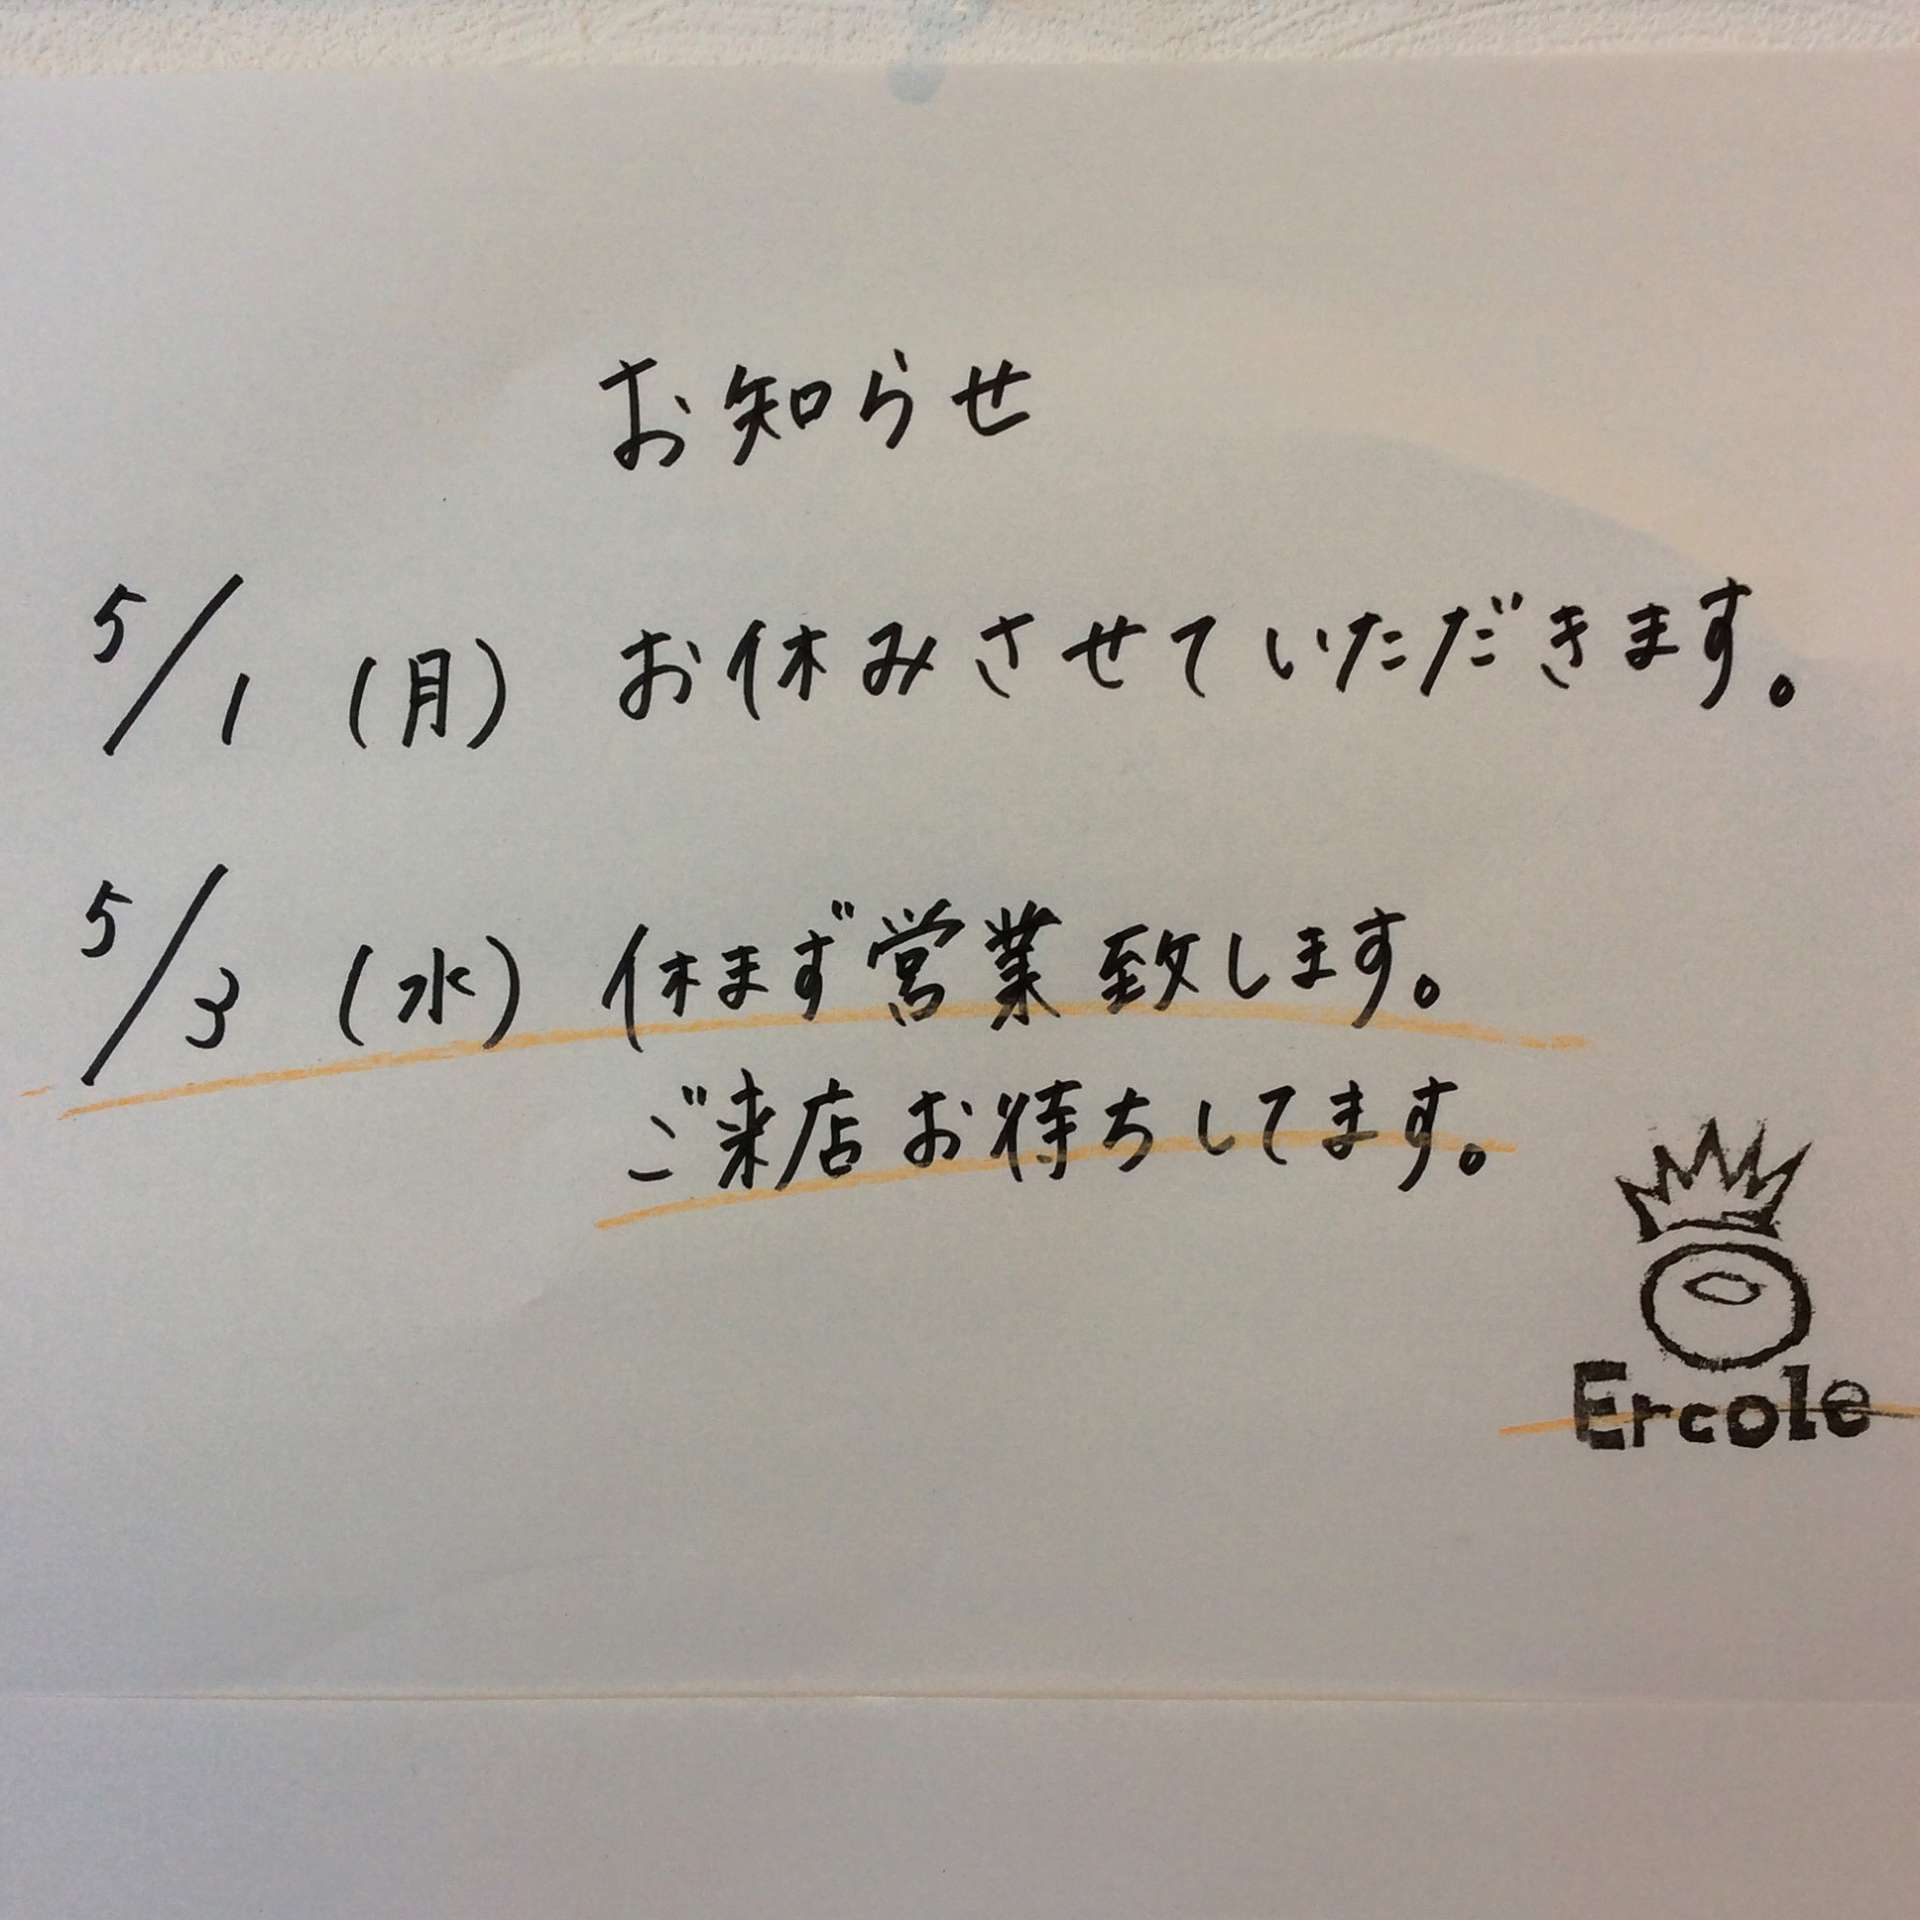 お知らせ
5/1（月） お休みさせていただきます。
5/3（水） 休まず営業致します。
ご来店お待ちしてます。
Ercole